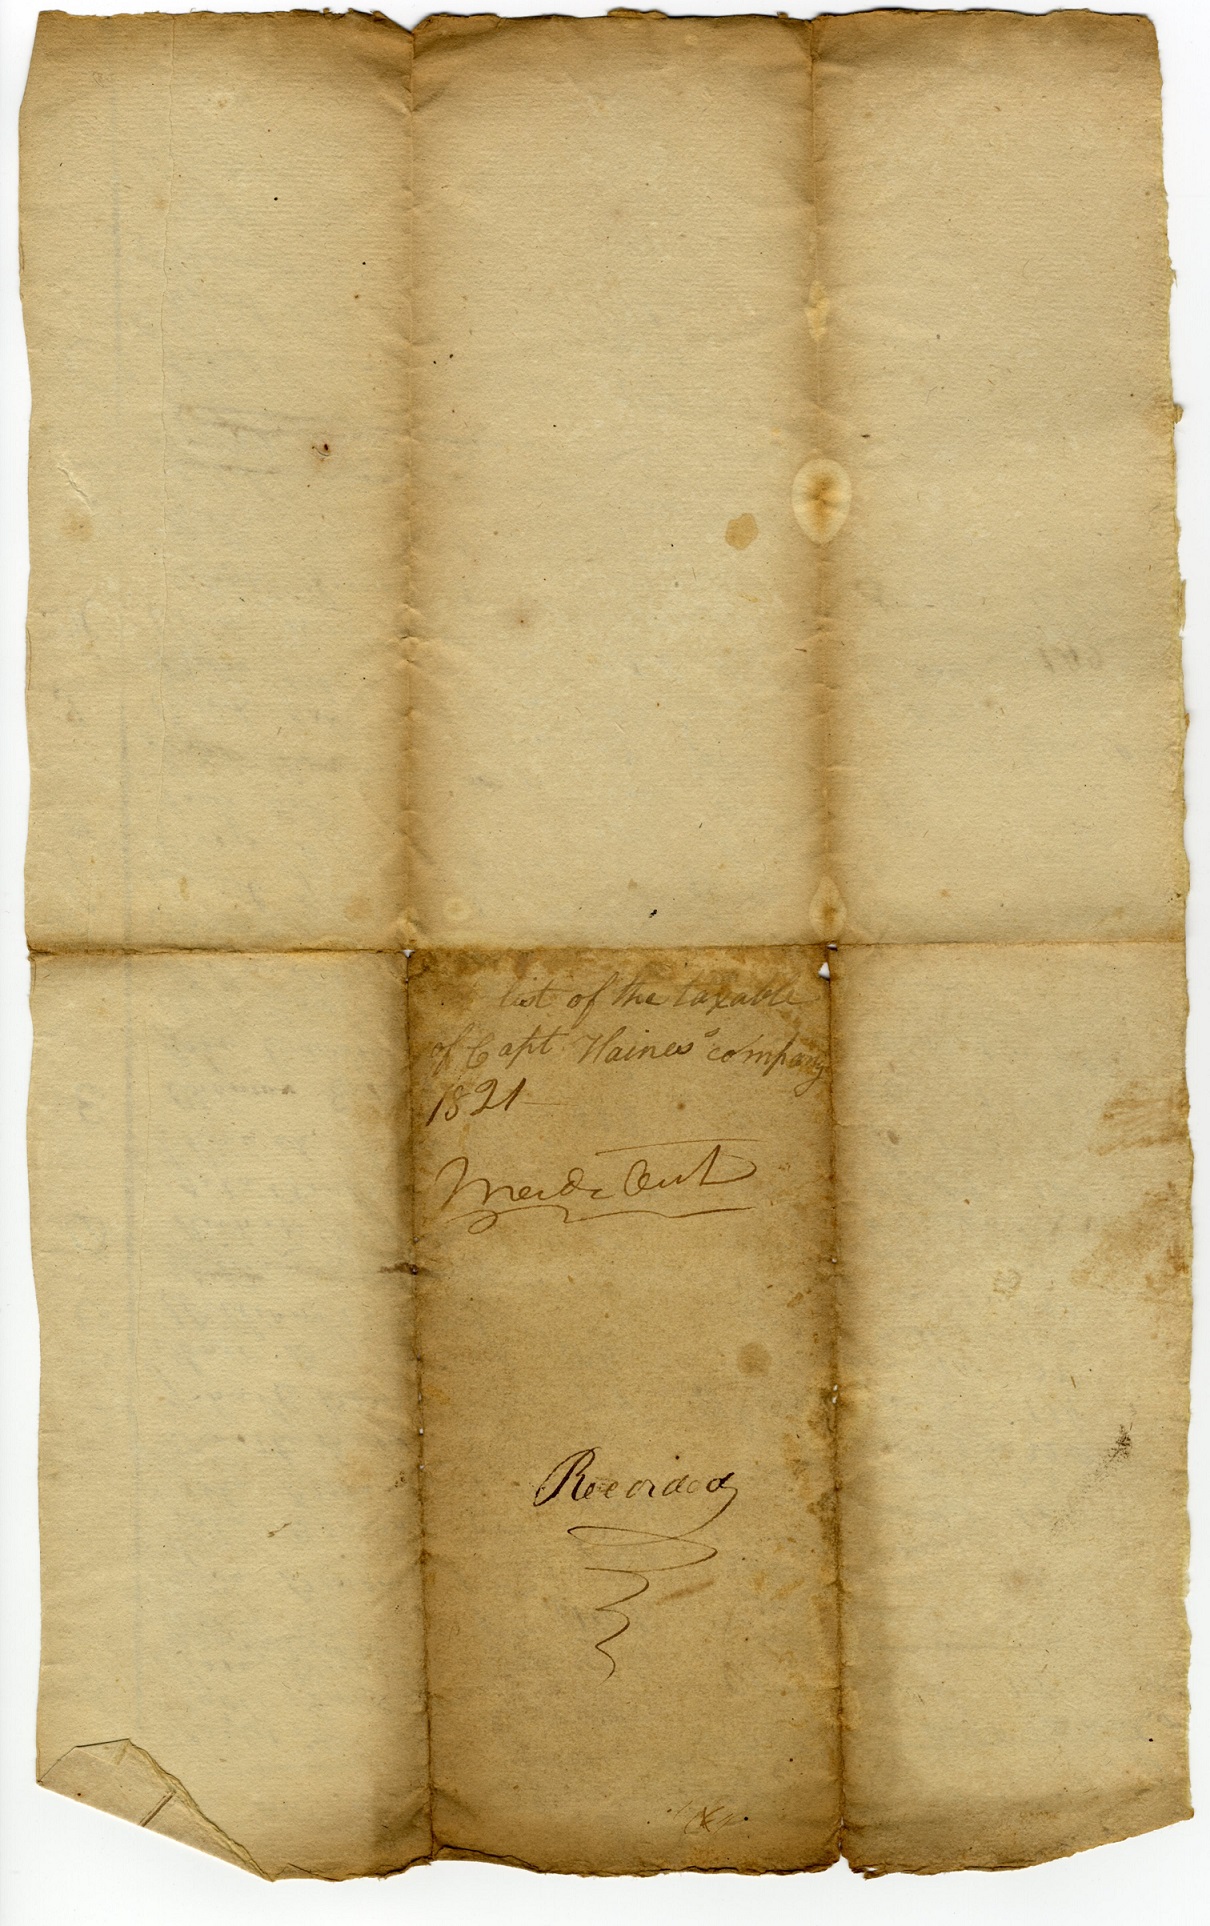 list of the taxable
of Capt Haines' company
1821
Recorded